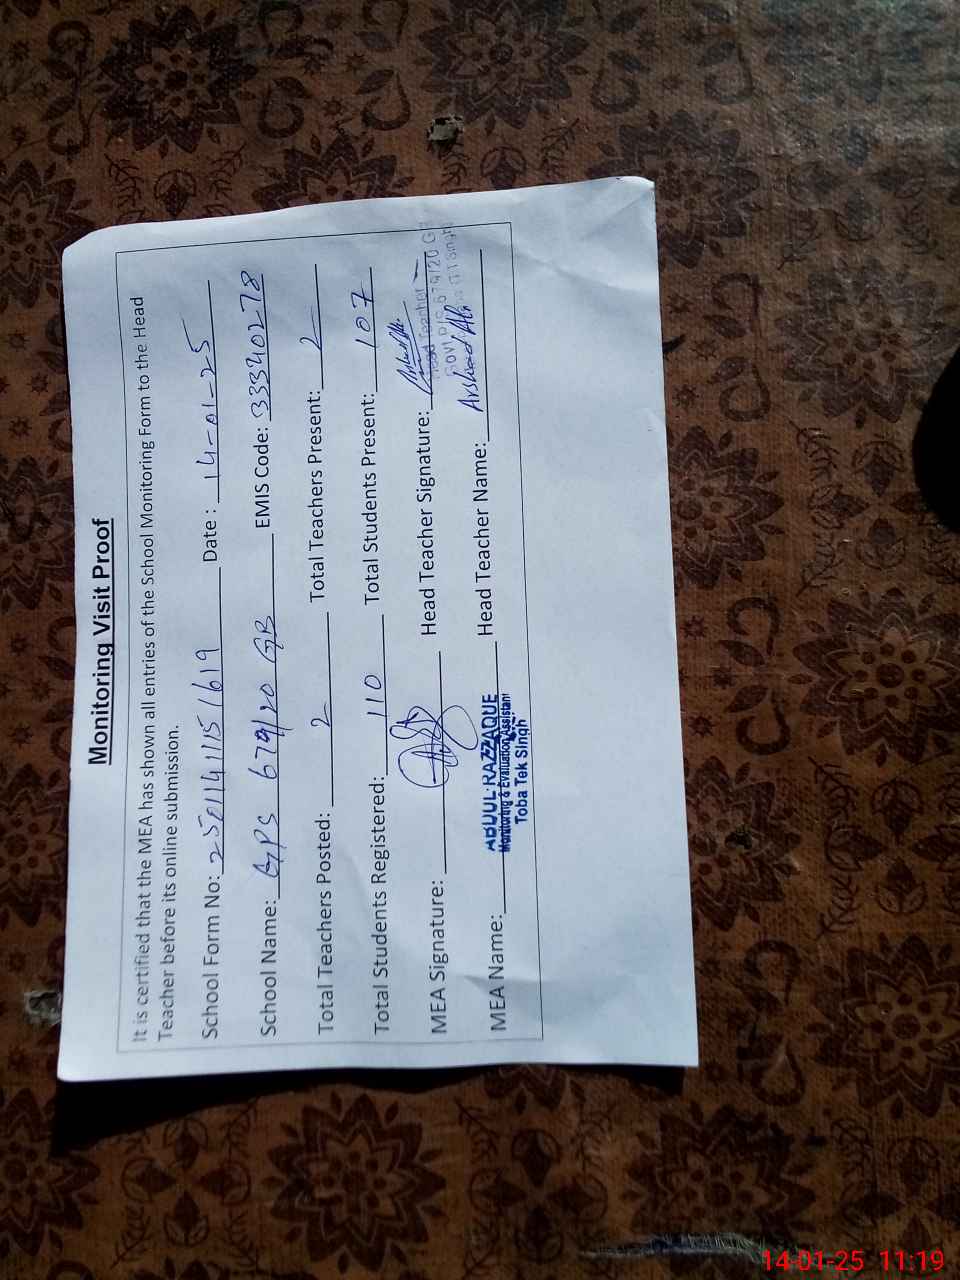 Monitoring Visit Proof
It is certified that the MEA has shown all entries of the School Monitoring Form to the Head
Teacher before its online submission.
School Form No: 25011411151619 Date : 14-01-25
School Name: GPS 679/20 GB EMIS Code: 33340278
Total Teachers Posted: 2 Total Teachers Present: 2
Total Students Registered: 110 Total Students Present: 107
MEA Signature: Head Teacher Signature:
Head Teacher
GOVT P/S 679/20 G
MEA Name: ABDUL RAZZAQUE Head Teacher Name: Arshad Ali
Monitoring & Evaluation Assistant
Toba Tek Singh
14-01-25 11:19